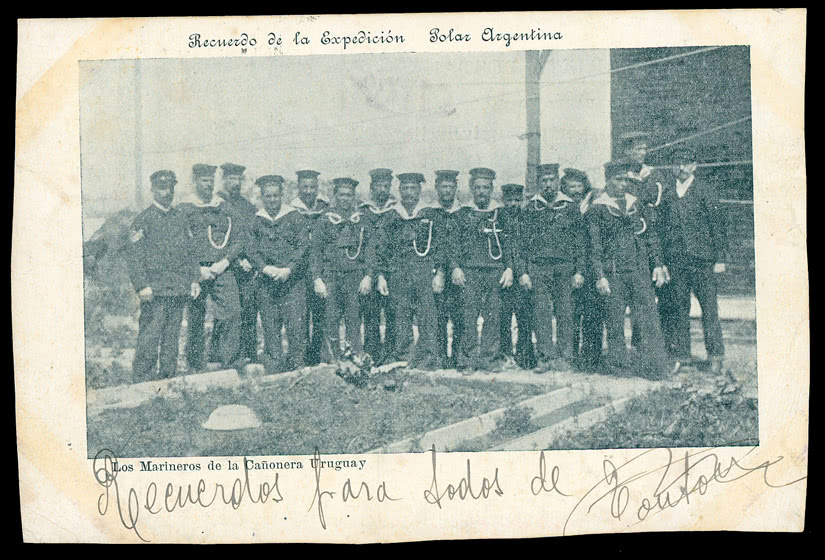 Recuerdo de la Expedición Polar Argentina
Los Marineros de la Cañonera Uruguay
Recuerdos para todos de